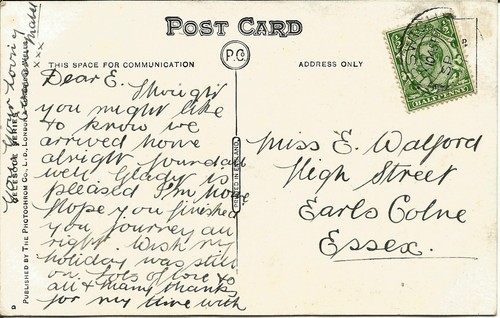 POST CARD
P.C.
THIS SPACE FOR COMMUNICATION
ADDRESS ONLY
Dear E. Thought
you might like
to know we
arrived home
alright found all
well. Glady is
pleased I'm home
Hope you finished
you journey all
right. Wish my
holiday was still
on. Lots of love to
all & many thanks
for my time with
Loving
Mabel
x x x
Miss E. Walford
High Street
Earls Colne
Essex.
HALF PENNY
PRINTED IN ENGLAND
PUBLISHED BY THE PHOTOCHROM CO., LTD., LONDON
D